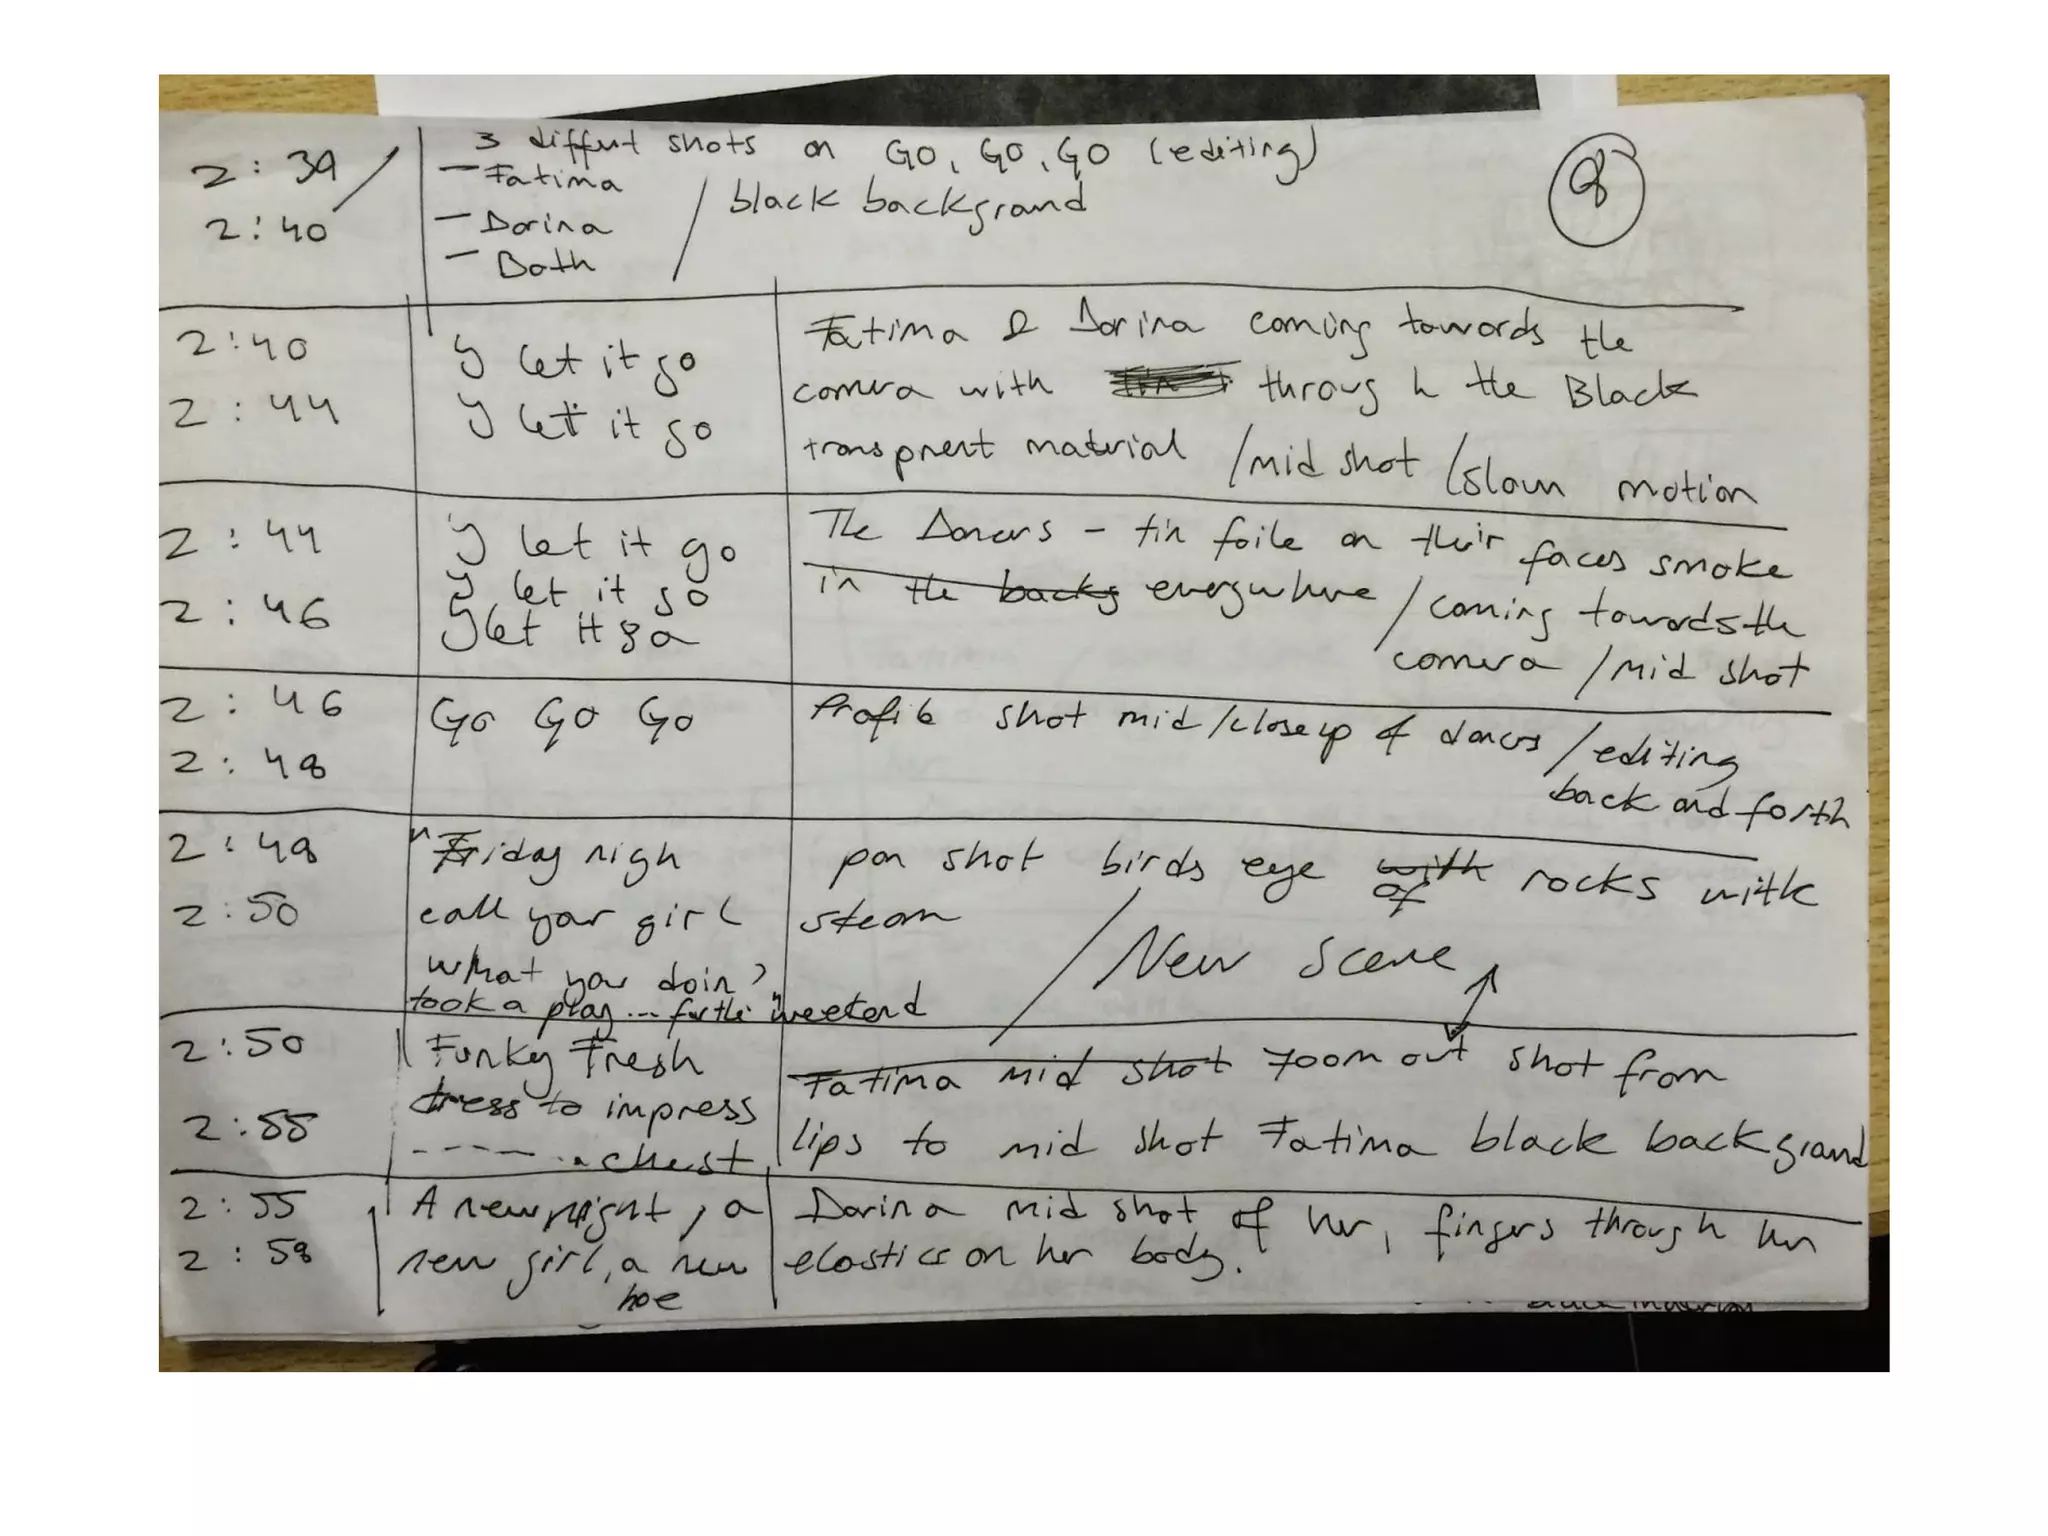 2:39 / 3 diffent shots on GO, GO, GO (editing)
8
- Fatima / black backgrand
2:40
- Dorina
- Both
2:40 I let it go Fatima & Dorina coming towards the
camera with through the Black
2:44 I let it go
transprent material / mid shot / slown motion
2:44 I let it go The Dancers - tin foile on their faces smoke
I let it go in the backg everywhere / coming towards the
2:46 I let it go
camera / mid shot
2:46 Go Go Go Profile shot mid/closeup of dancers / editing
2:48 back and forth
2:48 "Friday nigh pan shot birds eye with of rocks with
2:50 call your girl steam
what you doin' / New Scene
took a play ... for the weekend"
2:50 Funky Fresh Fatima mid shot zoom out shot from
dress to impress
2:55 lips to mid shot Fatima black backgrand
------ chest
2:55 A new night, a Dorina mid shot of her, fingers through her
2:58 new girl, a new elastics on her body.
hoe